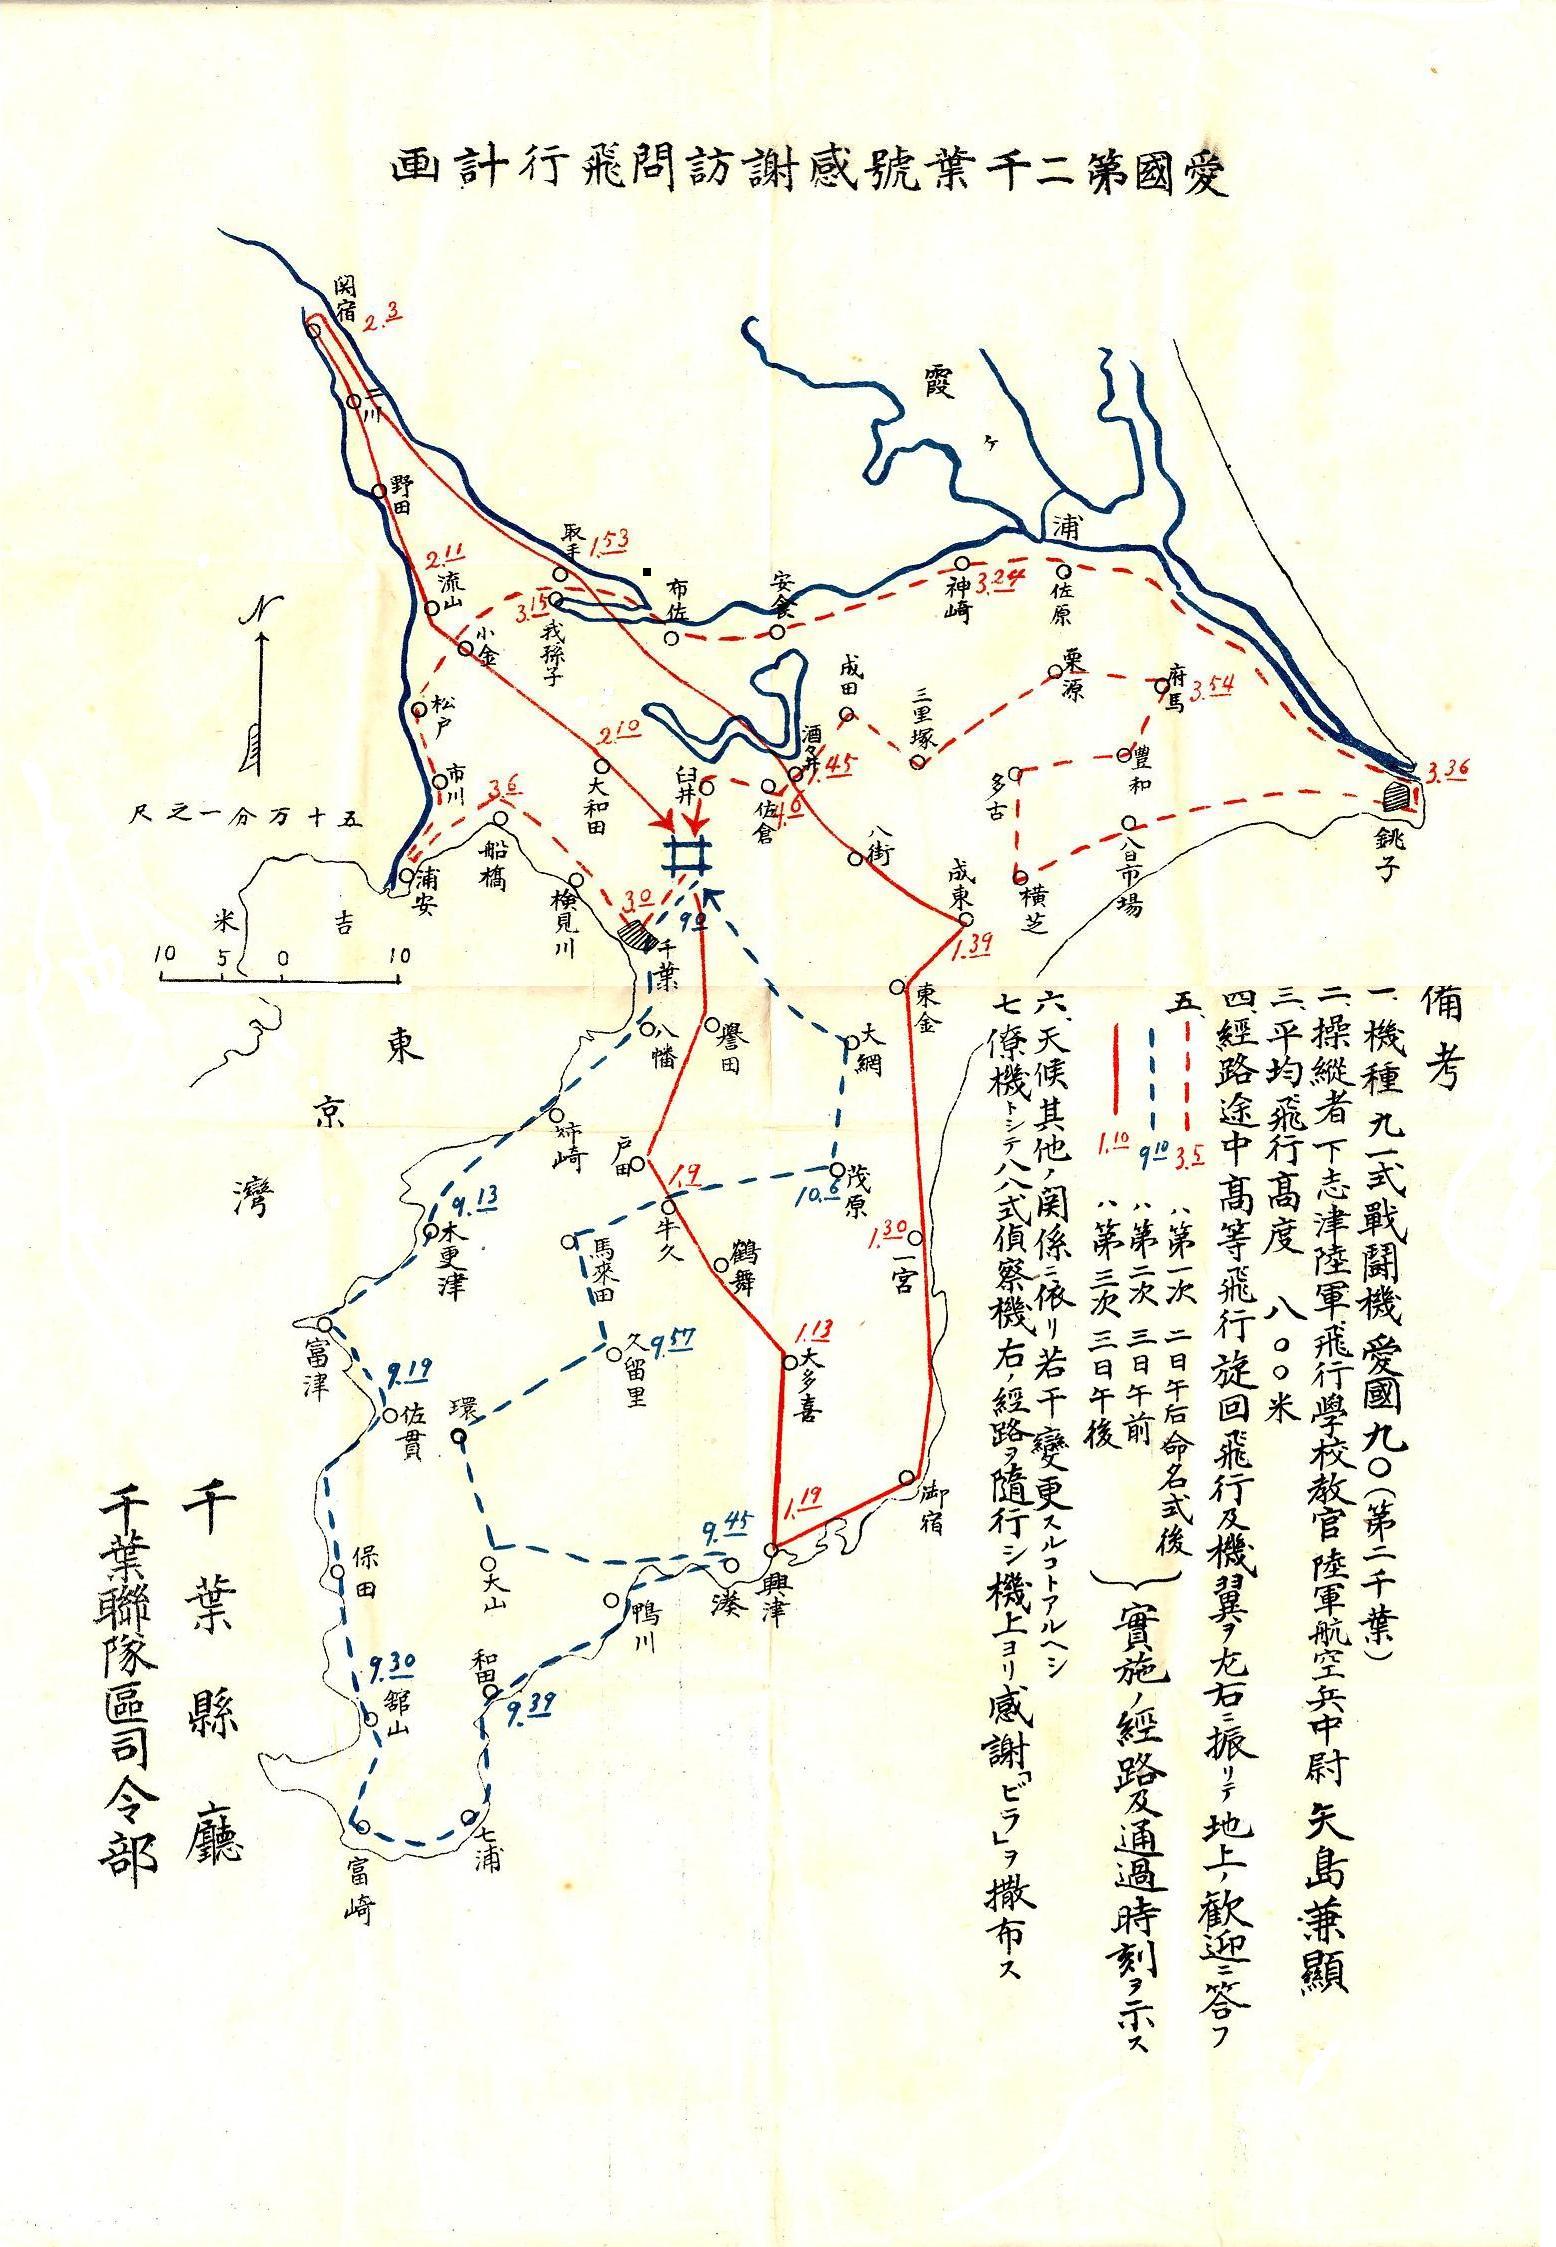 愛國第二千葉號感謝訪問飛行計画
関宿
2.3
二川
野田
2.11
流山
取手
1.53
3.15
我孫子
小金
布佐
安食
神崎
3.24
佐原
霞
ヶ
浦
松戸
市川
3.6
船橋
浦安
検見川
2.10
大和田
臼井
佐倉
4.6
酒々井
成田
三里塚
栗源
府馬
3.54
豊和
多古
横芝
八日市場
銚子
3.36
八街
成東
1.39
東金
N
五十万分一之尺
米
吉
10 5 0 10
東
京
灣
3.0
9.0
千葉
八幡
誉田
大網
姉崎
戸田
1.9
牛久
茂原
10.6
9.13
木更津
馬來田
鶴舞
1.30
一宮
富津
9.19
佐貫
久留里
9.57
環
1.13
大多喜
1.19
御宿
興津
9.45
湊
鴨川
大山
保田
9.30
舘山
和田
9.39
七浦
富崎
備考
一、機種 九一式戰闘機 愛國九〇(第二千葉)
二、操縦者 下志津陸軍飛行學校教官 陸軍航空兵中尉 矢島兼顯
三、平均飛行高度 八〇〇米
四、經路途中高等飛行旋回飛行及機翼ヲ左右ニ振リテ地上ノ歓迎ニ答フ
五、
3.5 ハ第一次 二日午后命名式後
9.10 ハ第二次 三日午前
1.10 ハ第三次 三日午後
實施ノ經路及通過時刻ヲ示ス
六、天候其他ノ関係ニ依リ若干變更スルコトアルヘシ
七、僚機トシテ八八式偵察機右ノ經路ヲ隨行シ機上ヨリ感謝「ビラ」ヲ撒布ス
千葉縣廳
千葉聯隊區司令部